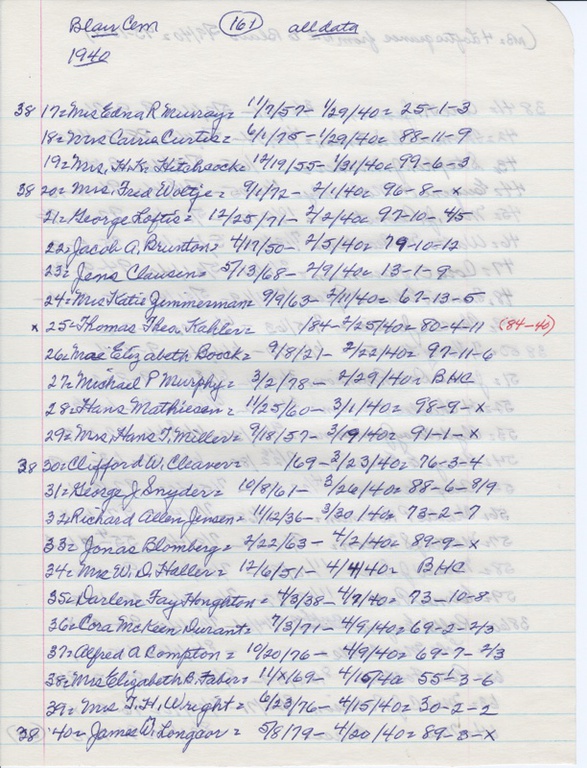 Blair Cem 161 all data
1940
38 17= Mrs Edna R Murray= 11/7/57- 1/29/40= 25-1-3
18= Mrs Carrie Curtis= 6/1/75- 1/29/40= 88-11-9
19= Mrs. H.K. Hitchcock= 12/19/55- 1/31/40= 99-6-3
38 20= Mrs. Fred Woltje= 9/1/72- 2/1/40= 96-8-x
21= George Loftis= 12/25/71- 2/2/40= 97-10-4/5
22= Jacob A. Brunton= 4/17/50- 2/5/40= 79-10-12
23= Jens Clausen= 5/13/68- 2/9/40= 13-1-9
24= Mrs Katie Jimmerman= 9/9/63- 2/11/40= 67-13-5
x 25= Thomas Theo. Kahler= /84- 2/25/40= 80-4-11 (84-40)
26= Mae Elizabeth Boock= 9/8/21- 2/22/40= 97-11-6
27= Michael P Murphy= 3/2/78- 2/29/40= BHC
28= Hans Mathiesen= 11/25/60- 3/1/40= 98-9-x
29= Mrs. Hans T. Miller= 9/18/57- 3/19/40= 91-1-x
38 30= Clifford W. Cleaver= /69- 3/23/40= 76-3-4
31= George J. Snyder= 10/8/61- 3/26/40= 88-6-8/9
32= Richard Allen Jensen= 11/12/36- 3/30/40= 73-2-7
33= Jonas Blomberg= 2/22/63- 4/2/40= 89-9-x
34= Mrs W.D. Haller= 12/6/51- 4/4/40= BHC
35= Darlene Fay Houghton= 4/3/38- 4/7/40= 73-10-8
36= Cora McKeen Durant= 7/3/71- 4/9/40= 69-2-2/3
37= Alfred A Compton= 10/20/76- 4/9/40= 69-7-2/3
38= Mrs Elizabeth B. Faber= 11/x/69- 4/15/40 55-3-6
39= Mrs T.H. Wright= 6/23/76- 4/15/40= 30-2-2
38 40= James W. Longaor= 5/8/79- 4/20/40= 89-3-x